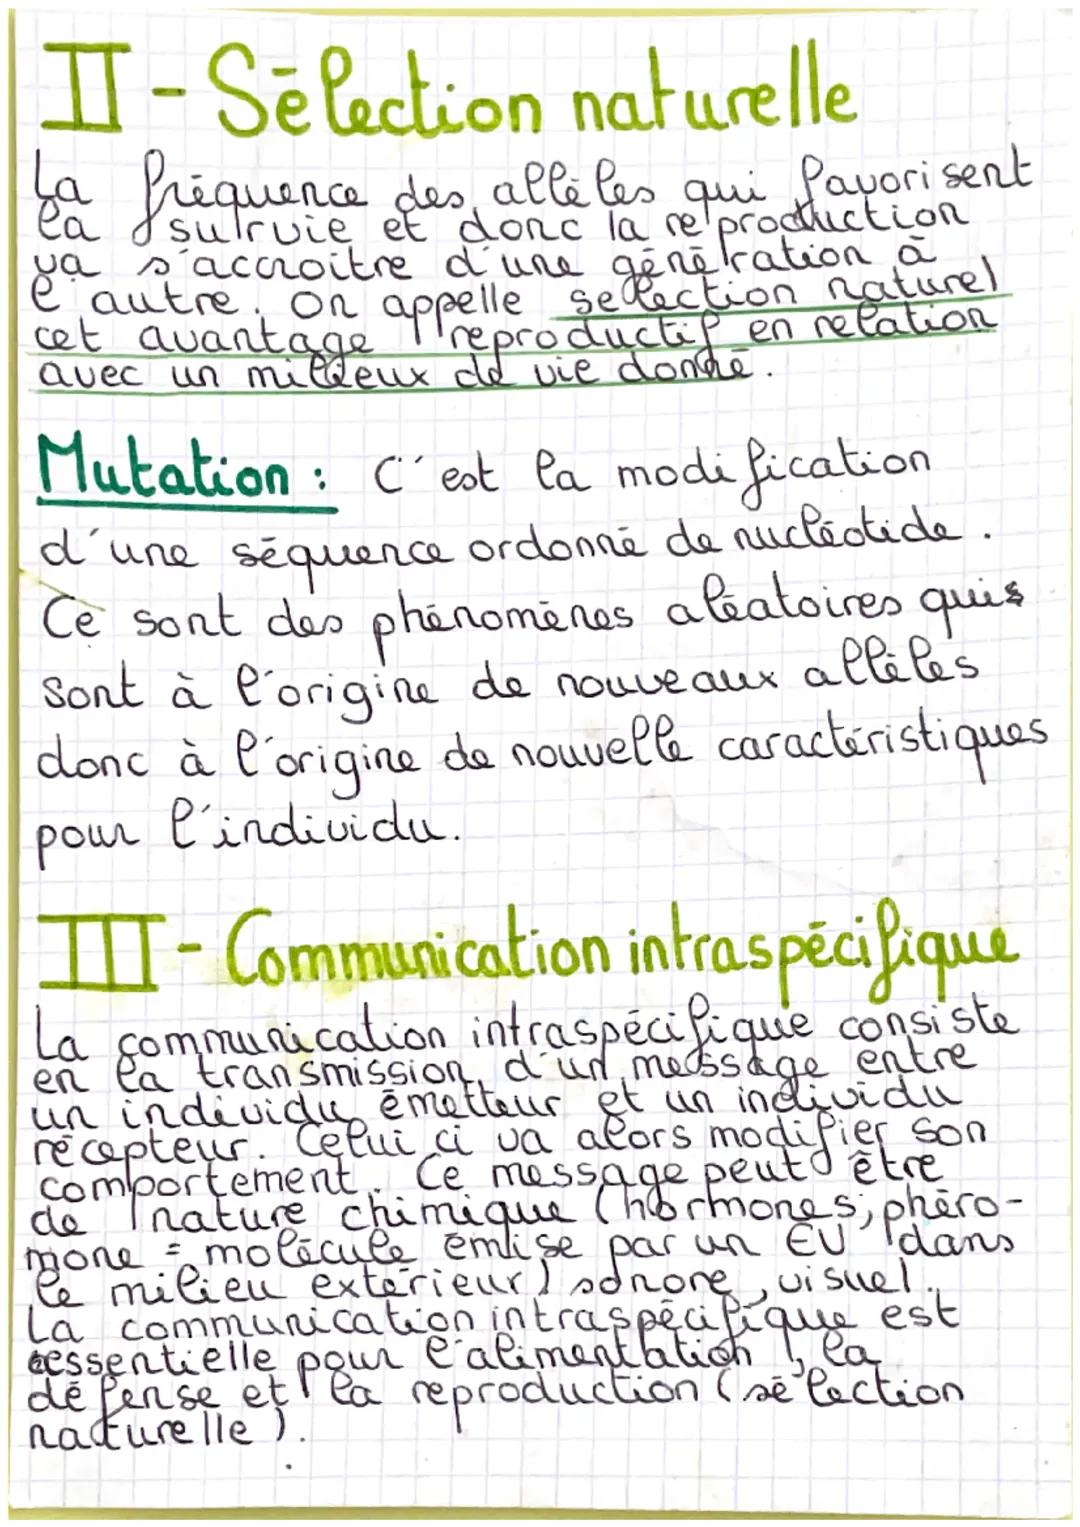 II - Sélection naturelle
La fréquence des allèles qui favorisent
la survie et donc la reproduction
va s'accroitre d'une génération à
l'autre. On appelle selection naturel
cet avantage reproductif en relation
avec un milieux de vie donné.
Mutation : C'est la modification
d'une séquence ordonné de nucléotide.
Ce sont des phénomènes aléatoires quis
sont à l'origine de nouveaux allèles
donc à l'origine de nouvelle caractéristiques
pour l'individu.
III - Communication intraspécifique
La communication intraspécifique consiste
en la transmission d'un message entre
un individu émetteur et un individu
récepteur. Celui ci va alors modifier son
comportement. Ce message peut être
de nature chimique (hormones; phéro-
mone = molécule émise par un EV dans
le milieu extérieur) sonore, visuel..
La communication intraspécifique est
essentielle pour l'alimentation, la
défense et la reproduction (sélection
naturelle).